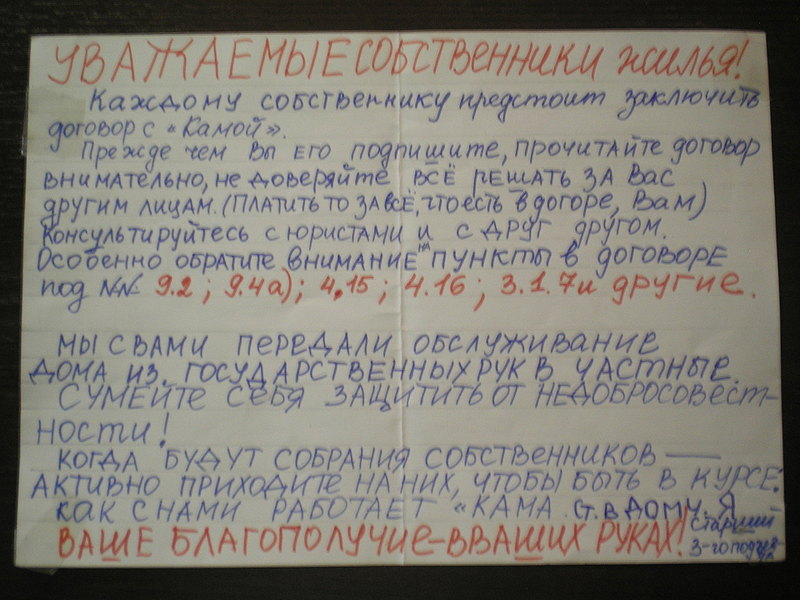 УВАЖАЕМЫЕ СОБСТВЕННИКИ жилья!
Каждому собственнику предстоит заключить
договор с «Камой».
Прежде чем Вы его подпишите, прочитайте договор
внимательно, не доверяйте всё решать за Вас
другим лицам. (Платить то за всё, что есть в догоре, Вам)
Консультируйтесь с юристами и с друг другом.
Особенно обратите внимание на пункты в договоре
под №№ 9.2; 9.4а); 4.15; 4.16; 3.1.7 и другие.
Мы с вами передали обслуживание
дома из государственных рук в частные.
Сумейте себя защитить от недобросовест-
ности!
Когда будут собрания собственников —
активно приходите на них, чтобы быть в курсе.
как с нами работает «Кама
ст. в дому. Я
ВАШЕ БЛАГОПОЛУЧИЕ-В ВАШИХ РУКАХ!
Старший
3-го